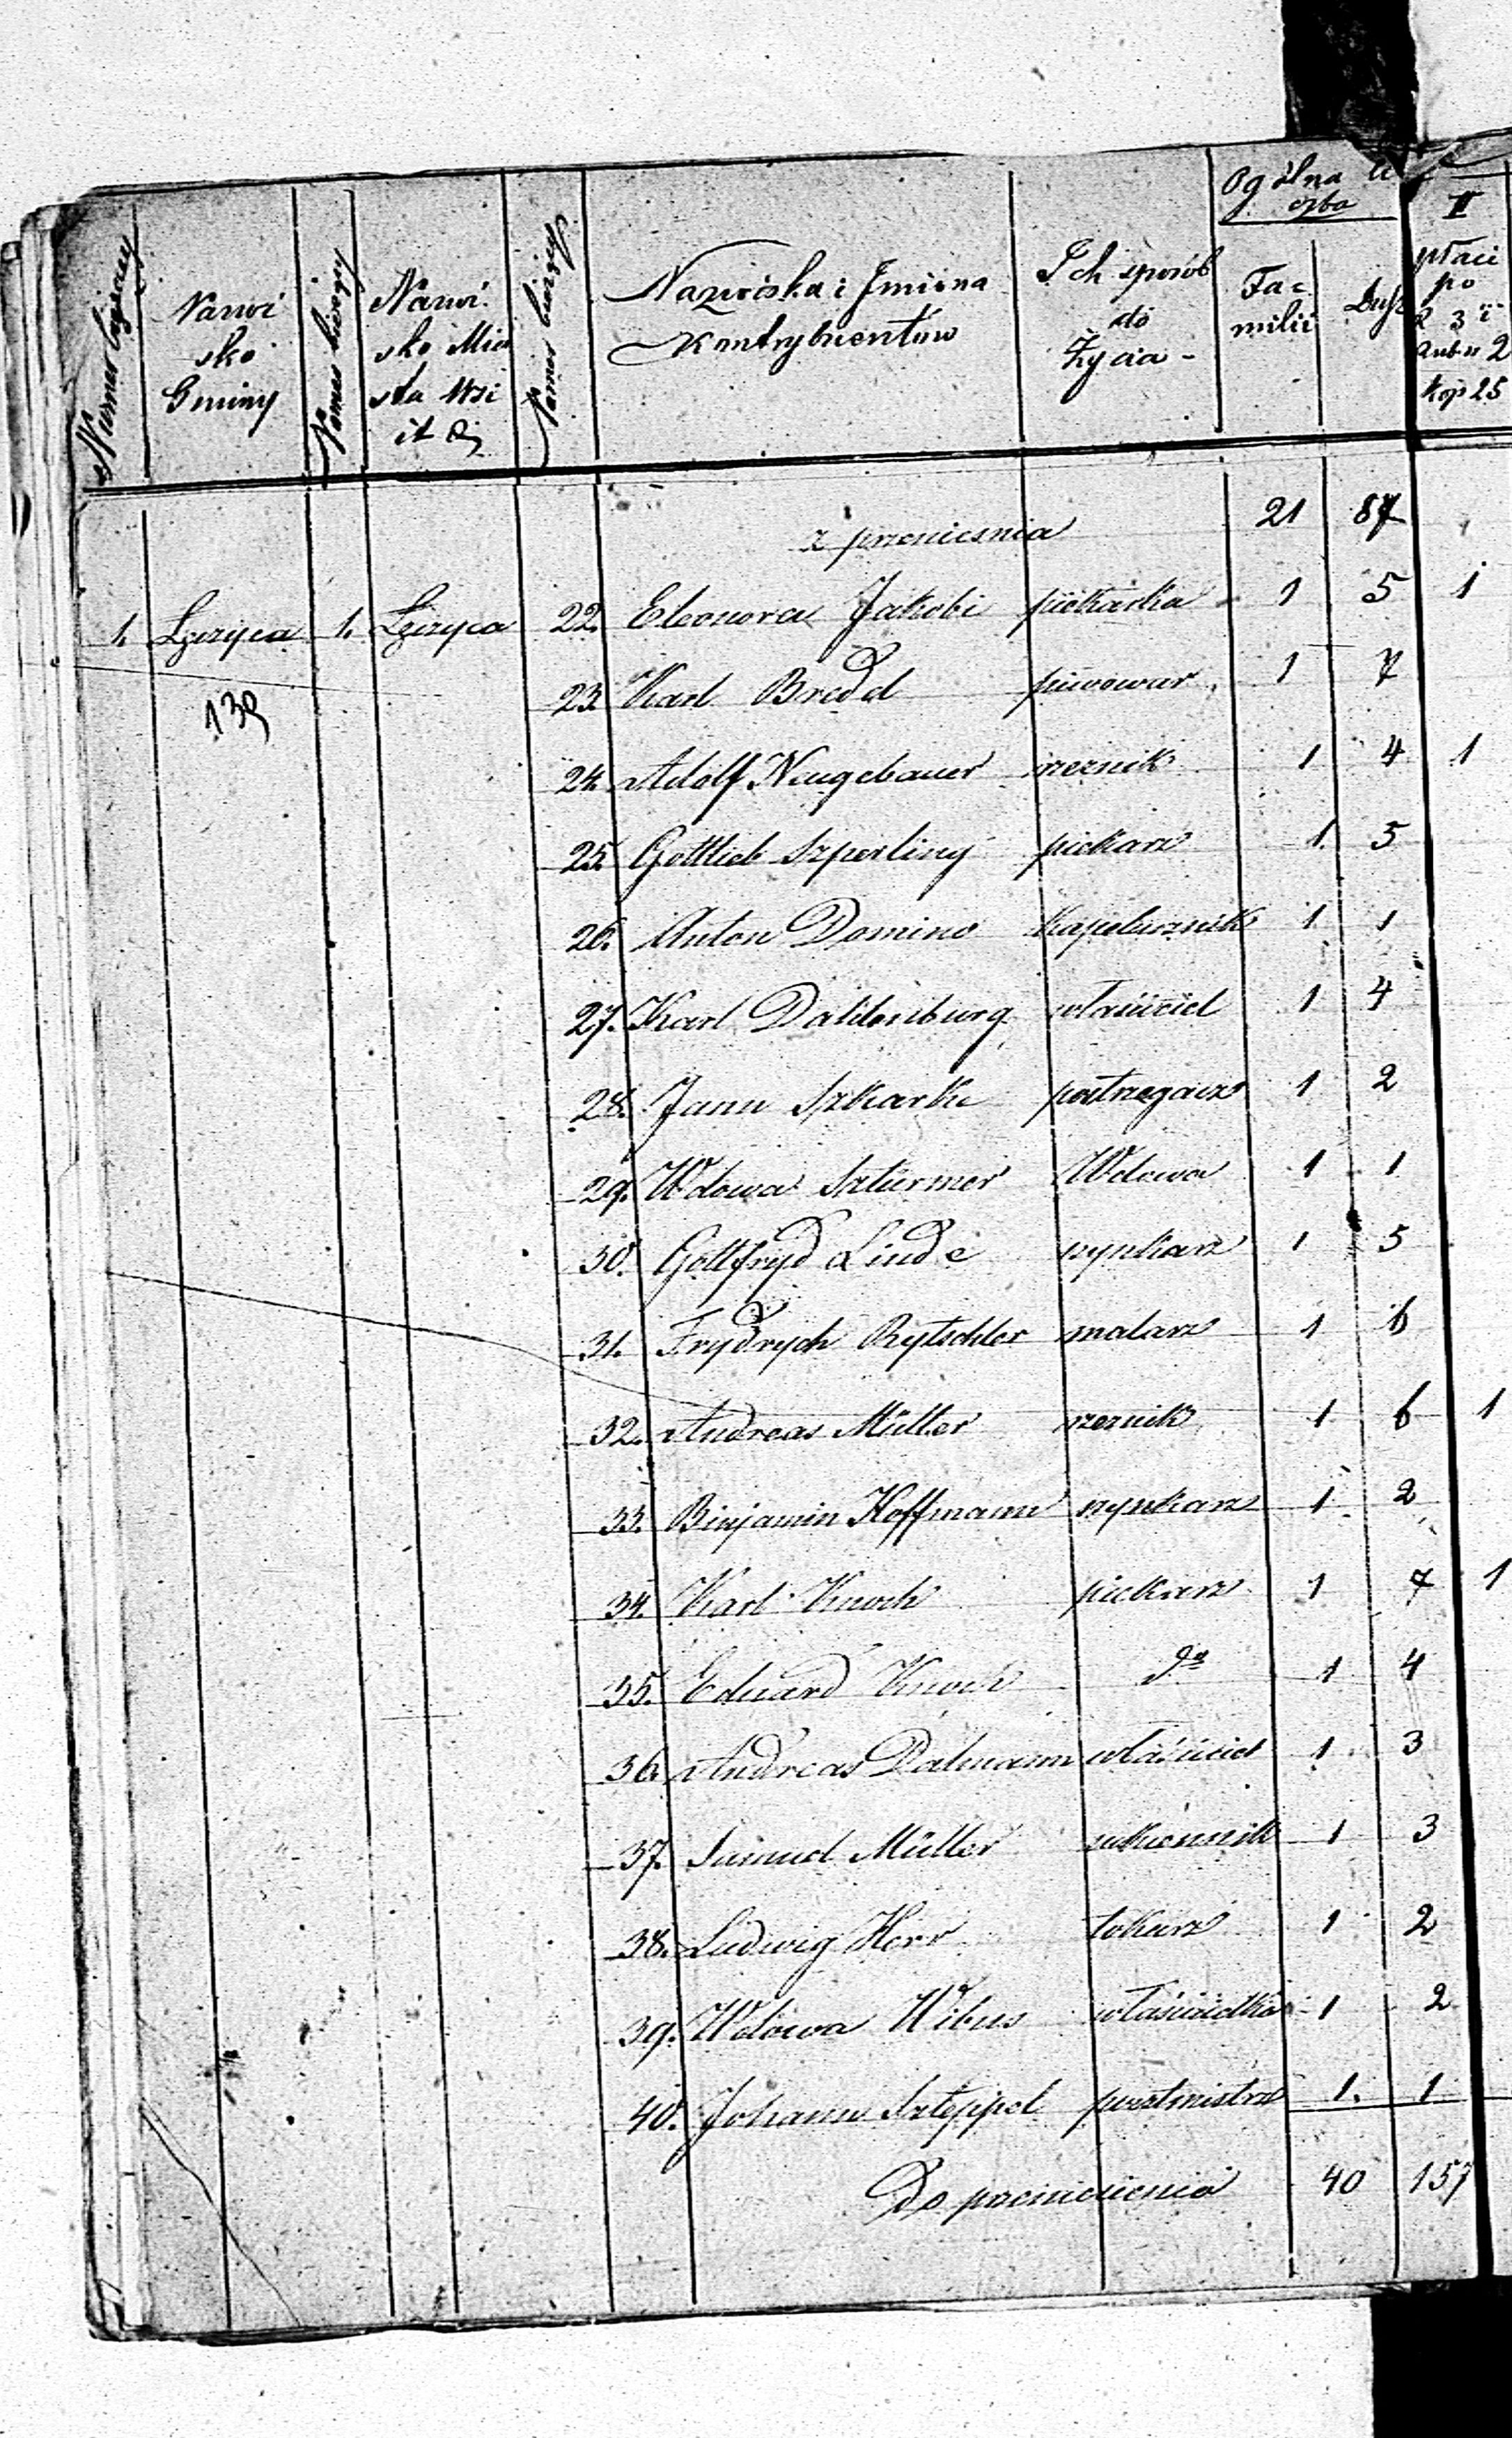 Ogólna li
czba
II
Numer bieżący
Nazwi
sko
Gminy
Numer bieżący
Nazwi
sko Mia
sta Wsi
it d.
Numer bieżący
Nazwiska i Imiona
Kontrybuentów
Ich sposób
do
Życia -
Fa=
milii
Dusz
płaci
po
R 3 i
kop 25
z przeniesnia 21 87
1. Łęczyca 1. Łęczyca 22. Eleonora Jakobi piekarka 1 5 1
139
23. Karl Bredel piwowar 1 7
24. Adolf Neugebauer rzeznik 1 4 1
25. Gottlieb Szperling piekarz 1 5
26. Anton Domino Kapelusznik 1 1
27. Karl Daldenburg właściciel 1 4
28. Jann Szkarke postrzegacz 1 2
29. Wdowa Szturmer Wdowa 1 1
30. Gottfryd Linde szynkarz 1 5
31. Frydrych Rytschler malarz 1 6
32. Andreas Müller rzeznik 1 6 1
33. Binjamin Hoffmann szynkarz 1 2
34. Karl Knoch piekarz 1 7 1
35. Eduard Knoch do 1 4
36. Andreas Dalmann właściciel 1 3
37. Samuel Müller sukiennik 1 3
38. Ludwig Herr tokarz 1 2
39. Wdowa Wibus właścicielka 1 2
40. Johann Szteppel pocztmistrz 1. 1
Do przeniesienia 40 157